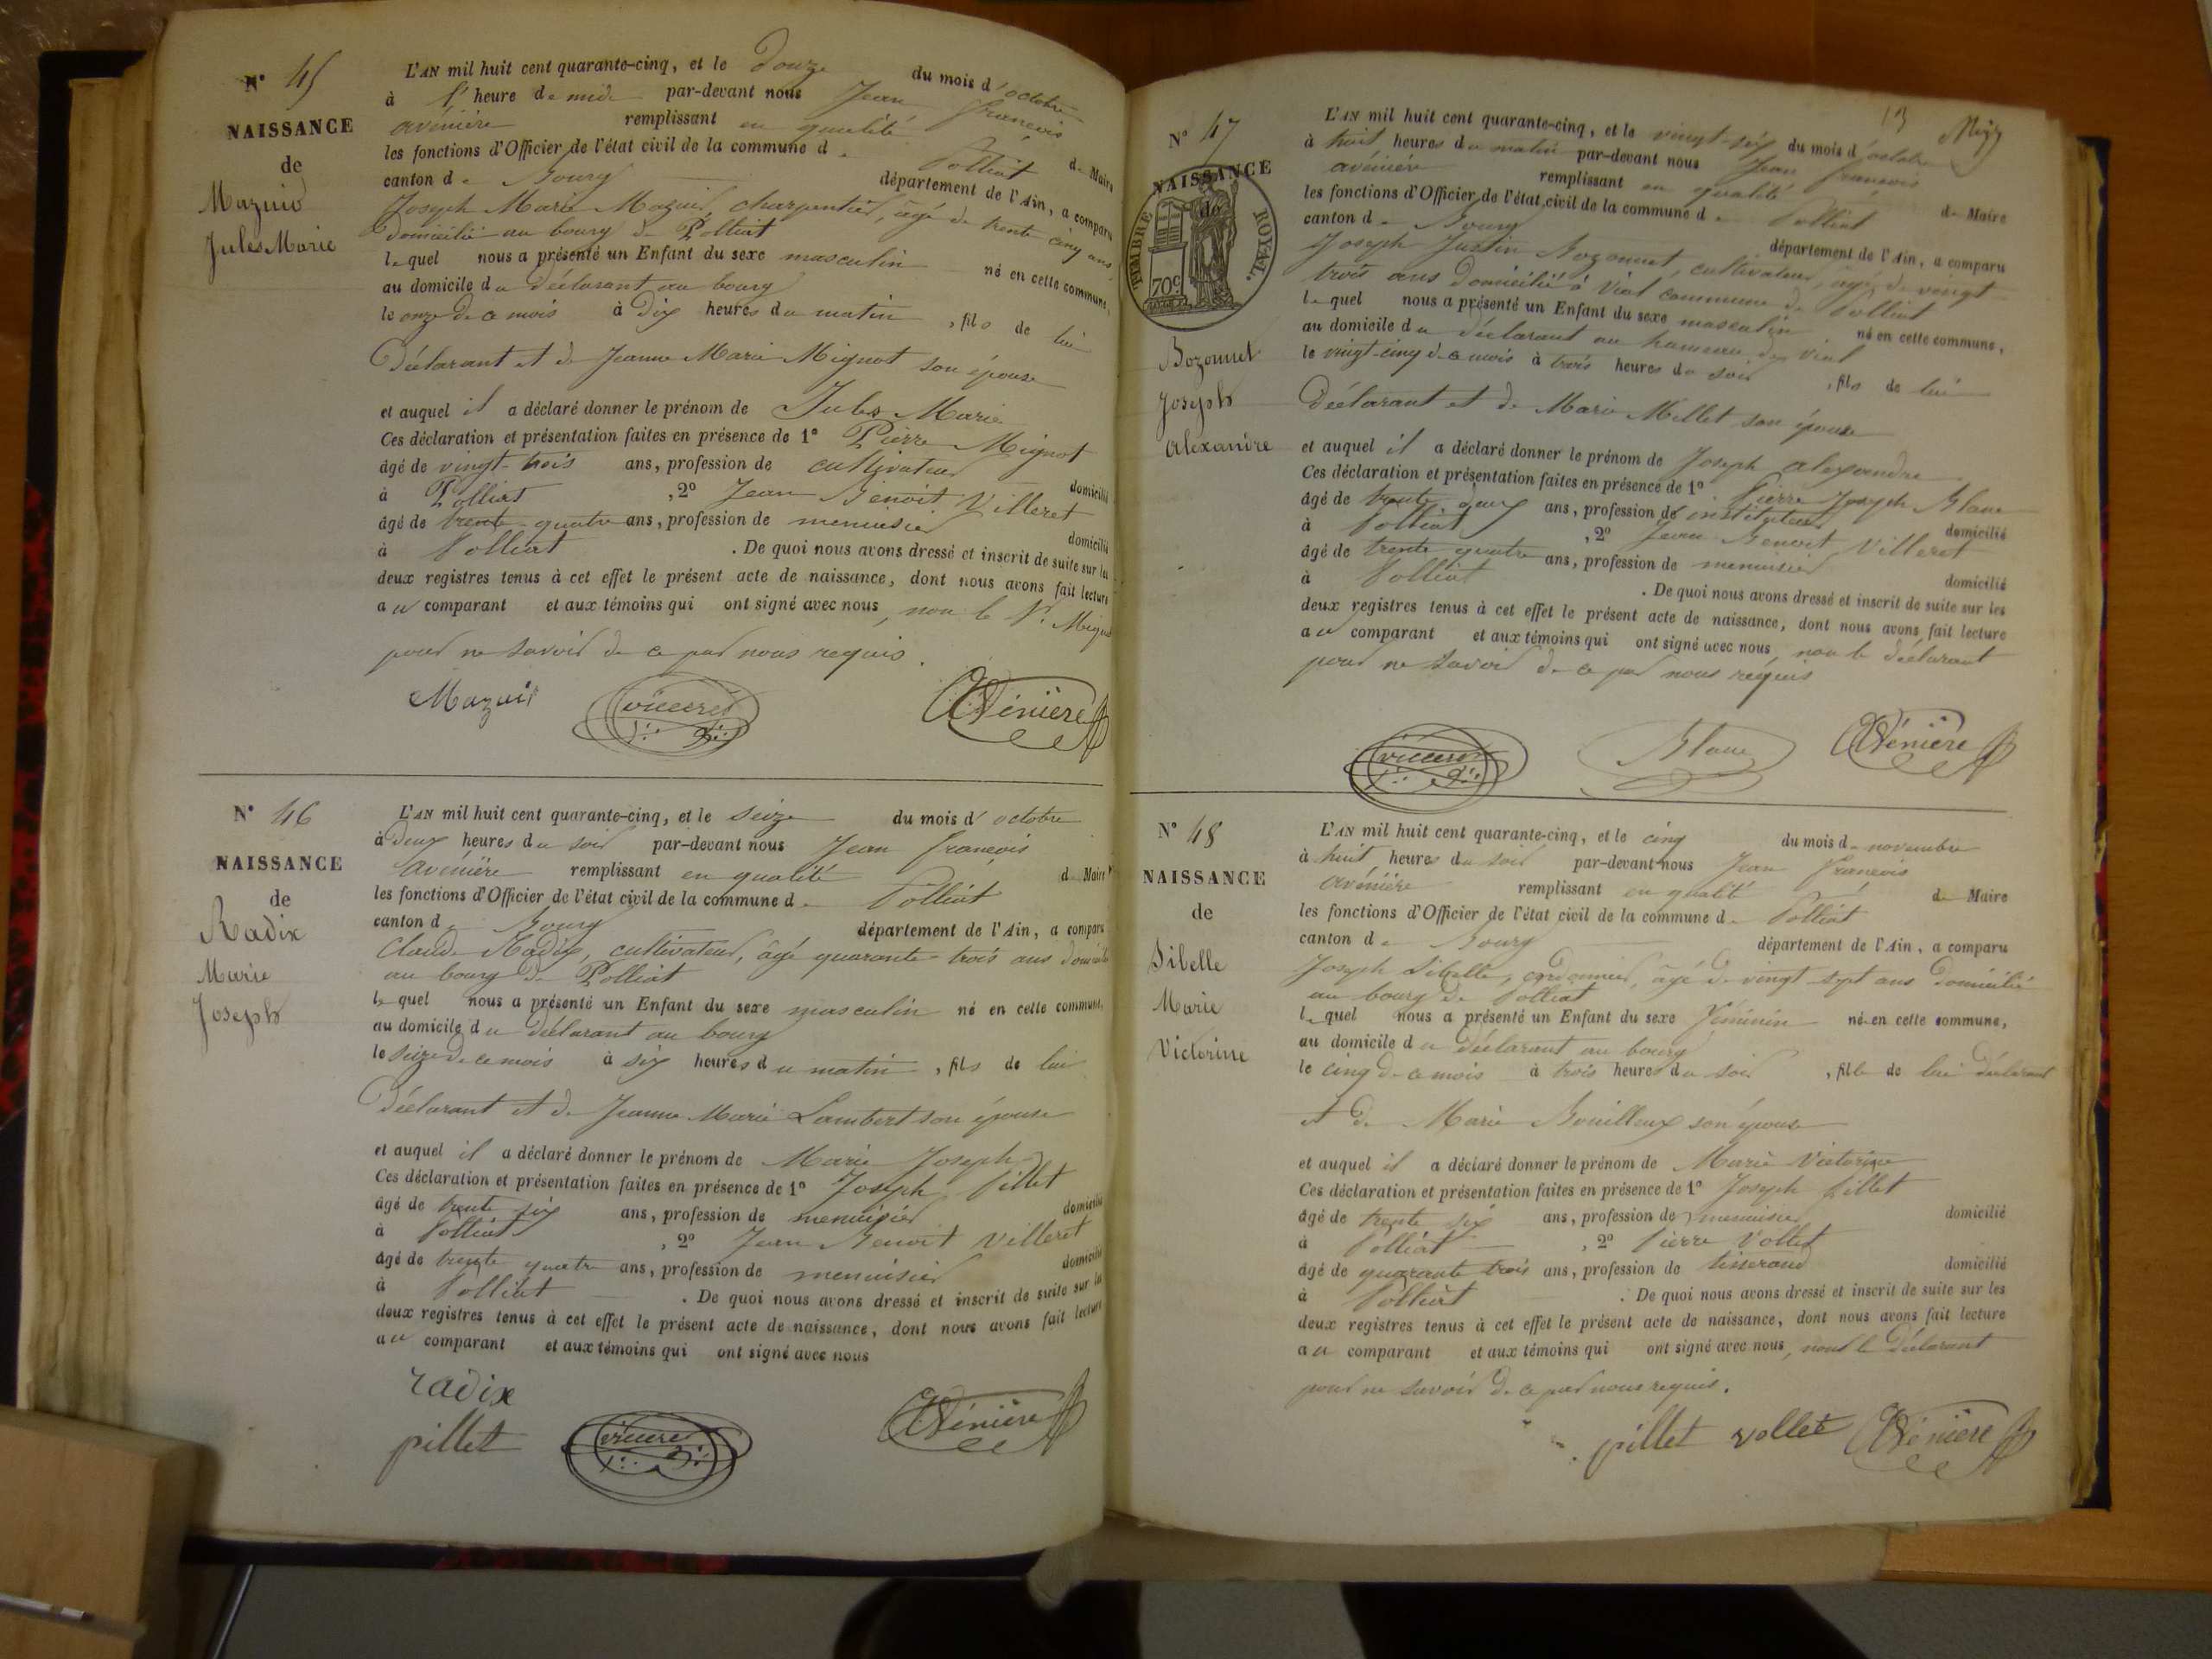 N° 45
NAISSANCE
de
Mazuid
Jules Marie
L'AN mil huit cent quarante-cinq, et le Douze du mois d'octobre
à l' heure de midi par-devant nous Jean françois
avénière remplissant en qualité de Maire
les fonctions d'Officier de l'état civil de la commune de Polliat
canton de Bourg département de l'Ain, a comparu
Joseph Marie Mazuid, charpentier, âgé de trente cinq ans
domicilié au bourg de Polliat
lequel nous a présenté un Enfant du sexe masculin né en cette commune,
au domicile du déclarant au bourg
le onze de ce mois à Dix heures du matin, fils de lui
Déclarant et de Jeanne Marie Mignot son épouse
et auquel il a déclaré donner le prénom de Jules Marie
Ces déclaration et présentation faites en présence de 1° Pierre Mignot
âgé de vingt-trois ans, profession de cultivateur domicilié
à Polliat, 2° Jean Benoit Villeret
âgé de trente quatre ans, profession de menuisier domicilié
à Polliat. De quoi nous avons dressé et inscrit de suite sur les
deux registres tenus à cet effet le présent acte de naissance, dont nous avons fait lecture
au comparant et aux témoins qui ont signé avec nous, non le Sr. Mignot
pour ne savoir de ce par nous requis.
Mazuid villeret Avénière
N° 46
NAISSANCE
de
Radix
Marie
Joseph
L'AN mil huit cent quarante-cinq, et le seize du mois d'octobre
à Deux heures du soir par-devant nous Jean françois
avénière remplissant en qualité de Maire
les fonctions d'Officier de l'état civil de la commune de Polliat
canton de Bourg département de l'Ain, a comparu
Claude Radix, cultivateur, âgé quarante-trois ans domicilié
au bourg de Polliat
lequel nous a présenté un Enfant du sexe masculin né en cette commune,
au domicile du déclarant au bourg
le seize de ce mois à six heures du matin, fils de lui
Déclarant et de Jeanne Marie Lambert son épouse
et auquel il a déclaré donner le prénom de Marie Joseph
Ces déclaration et présentation faites en présence de 1° Joseph Pillet
âgé de trente six ans, profession de menuisier domicilié
à Polliat, 2° Jean Benoit Villeret
âgé de trente quatre ans, profession de menuisier domicilié
à Polliat. De quoi nous avons dressé et inscrit de suite sur les
deux registres tenus à cet effet le présent acte de naissance, dont nous avons fait lecture
au comparant et aux témoins qui ont signé avec nous
radix
pillet villeret Avénière
13
N° 47
NAISSANCE
de
TIMBRE ROYAL.
70c
Bozonnet
Joseph
alexandre
L'AN mil huit cent quarante-cinq, et le vingt-six du mois d'octobre
à huit heures du matin par-devant nous Jean françois
avénière remplissant en qualité de Maire
les fonctions d'Officier de l'état civil de la commune de Polliat
canton de Bourg département de l'Ain, a comparu
Joseph Justin Bozonnet, cultivateur, âgé de vingt
trois ans domicilié à Vial commune de Polliat
lequel nous a présenté un Enfant du sexe masculin né en cette commune,
au domicile du déclarant au hameau de Vial
le vingt-cinq de ce mois à trois heures du soir, fils de lui
Déclarant et de Marie Millet son épouse
et auquel il a déclaré donner le prénom de Joseph alexandre
Ces déclaration et présentation faites en présence de 1° Pierre Joseph Blanc
âgé de trente deux ans, profession de instituteur domicilié
à Polliat, 2° Jean Benoit Villeret
âgé de trente quatre ans, profession de menuisier domicilié
à Polliat. De quoi nous avons dressé et inscrit de suite sur les
deux registres tenus à cet effet le présent acte de naissance, dont nous avons fait lecture
au comparant et aux témoins qui ont signé avec nous, non le déclarant
pour ne savoir de ce par nous requis
villeret Blanc Avénière
N° 48
NAISSANCE
de
Sibelle
Marie
Victorine
L'AN mil huit cent quarante-cinq, et le cinq du mois de novembre
à huit heures du soir par-devant nous Jean françois
avénière remplissant en qualité de Maire
les fonctions d'Officier de l'état civil de la commune de Polliat
canton de Bourg département de l'Ain, a comparu
Joseph Sibelle, cordonnier, âgé de vingt sept ans domicilié
au bourg de Polliat
lequel nous a présenté un Enfant du sexe féminin né en cette commune,
au domicile du déclarant au bourg
le cinq de ce mois à trois heures du soir, fille de lui déclarant
et de Marie Bouilloux son épouse
et auquel il a déclaré donner le prénom de Marie Victorine
Ces déclaration et présentation faites en présence de 1° Joseph Pillet
âgé de trente six ans, profession de menuisier domicilié
à Polliat, 2° Pierre Vollet
âgé de quarante trois ans, profession de tisserand domicilié
à Polliat. De quoi nous avons dressé et inscrit de suite sur les
deux registres tenus à cet effet le présent acte de naissance, dont nous avons fait lecture
au comparant et aux témoins qui ont signé avec nous, non le Déclarant
pour ne savoir de ce par nous requis.
pillet vollet Avénière